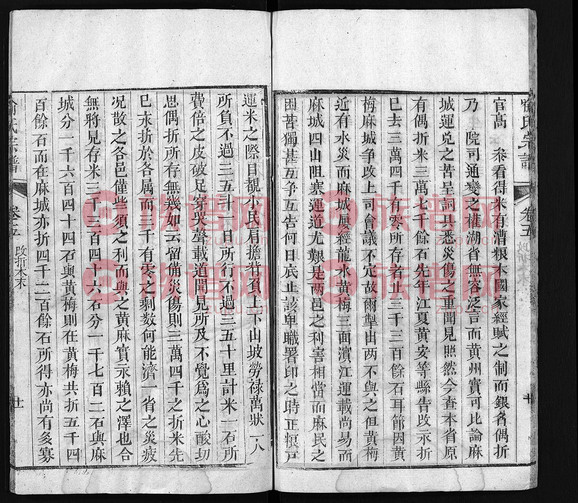 喻氏宗譜
卷五 改折本末
十
官高 叅看得來有漕糧本國家經賦之制而銀省偶折
乃 院司通變之權湖省無容泛言而黃州實可比論麻
城運兌之苦呈詞具悉災傷之重聞見照然今查本省原
有偶折米三萬七千餘石先年江夏黃安等縣告改示折
已去三萬四千有零所存者止三千三百餘石耳節因黃
梅麻城爭改上司會議不定故爾掣出两不與之但黃梅
近有水災而麻城屢經龍水黃梅三面濱江運載尚易而
麻城四山阻塞運道尤艱是两邑之利害相當而麻民之
困苦獨甚互爭互告何日底止該卑職署印之時正值戶
運米之際目覩小民肩擔背負上下山坡勞碌萬狀一人
所負不過三五斗一日所行不過三五十里計米一石所
費倍之皮破足穿哭聲載道聞見所及不覺為之心酸切
思偶折所存無幾如云留備災傷則三萬四千之折米先
已未折於各属而三千有零之剩数何能濟一省之災疲
况散之各邑僅些須之利而與之黃麻實永賴之澤也合
無將見存米三千三百四十六石分一千七百二石與麻
城分一千六百四十四石與黃梅則在黃梅共折五千四
百餘石而在麻城亦折四千二百餘石所得亦尚有多寡
喻氏宗譜
卷五 改折本末
廿